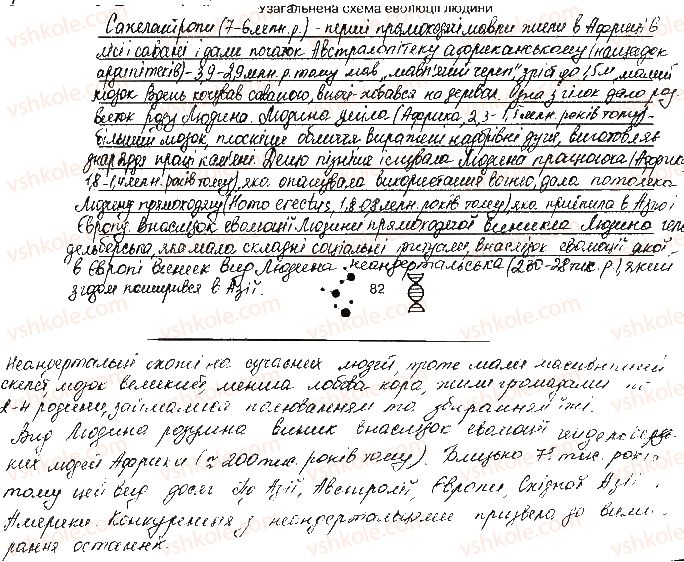 Узагальнена схема еволюції людини
Сахелантропи (7-6 млн. р.) - перші прямоходячі мавпи жили в Африці в
лісі і савані і дали початок Австралопітеку африканському (нащадок
ардипітеків) - 3,9-2,9 млн. р. тому мав „мавпячий череп", зріб до 1,5 м, малий
мозок Вдень кочував саваною, вночі ховався на деревах. Одна з гілок дала роз
виток роду Людина. Людина уміла (Африка, 2,3-1,5 млн. років тому)-
більший мозок, плоскіше обличчя виражені надбрівні дуги, виготовляв
знаряддя праці кам'яні. Дещо пізніше існувала Людина працююча (Африка
1,8-1,4 млн. років тому), яка опанувала використання вогню, дала початок
Людину прямоходячу (Homo erectus, 1,8-0,8 млн. років тому), яка прийшла в Азію і
Європу. Внаслідок еволюції Людини прямоходячої виникла Людина гей
дельберська, яка мала складні соціальні ритуали, внаслідок еволюції якої
в Європі виник вид Людина неандертальська (230-28 тис. р.), який
згодом поширився в Азії.
82
Неандертальці схожі на сучасних людей, проте мали масивніший
скелет, мозок великий, менша лобова кора, жили громадами по
2-4 родини, займалися полюванням та збиранням їжі.
Вид Людина розумна виник внаслідок еволюції гендельберзь
ких людей Африки (≈ 200 тис. років тому). Близько 75 тис. років
тому цей вид досяг до Азії, Австралії, Європи, Східної Азії
Америки. Конкуренція з неандертальцями призвела до вими-
рання останніх.
vshkole.com